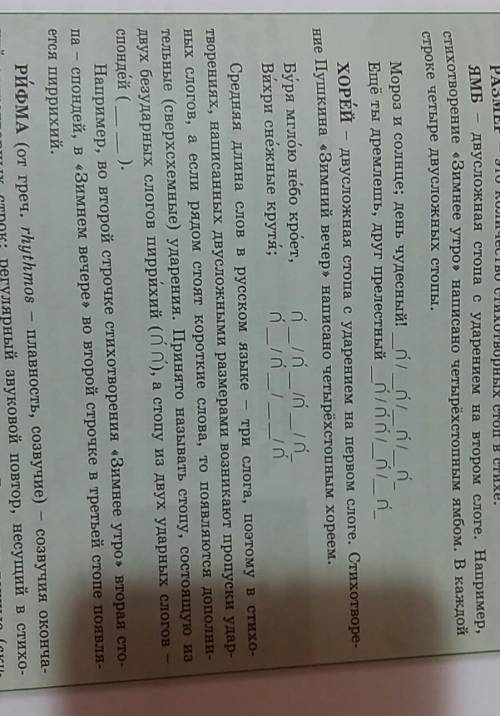 ЯМБ – двусложная стопа с ударением на втором слоге. Например,
стихотворение «Зимнее утро» написано четырёхстопным ямбом. В каждой
строке четыре двусложных стопы.
Мороз и солнце; день чудесный!
Ещё ты дремлешь, друг прелестный
ХОРЕ́Й – двусложная стопа с ударением на первом слоге. Стихотворе-
ние Пушкина «Зимний вечер» написано четырёхстопным хореем.
Бу́ря мгло́ю не́бо кро́ет,
Ви́хри сне́жные крутя́;
Средняя длина слов в русском языке – три слога, поэтому в стихо-
творениях, написанных двусложными размерами возникают пропуски удар-
ных слогов, а если рядом стоят короткие слова, то появляются дополни-
тельные (сверхсхемные) ударения. Принято называть стопу, состоящую из
двух безударных слогов пирри́хий (∩ ∩), а стопу из двух ударных слогов –
спонде́й (_ _).
Например, во второй строчке стихотворения «Зимнее утро» вторая сто-
па – спондей, в «Зимнем вечере» во второй строчке в третьей стопе появля-
ется пиррихий.
РИ́ФМА (от греч. rhythmos – плавность, созвучие) – созвучия оконча-
строк; регулярный звуковой повтор, несущий в стихо-